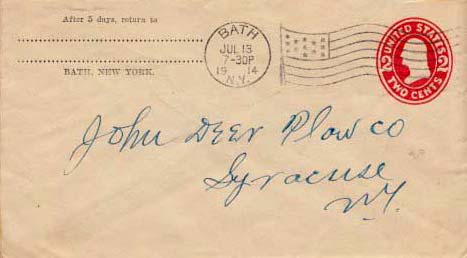 After 5 days, return to
BATH, NEW YORK.
BATH
JUL 13
7-30P
19 14
N.Y.
UNITED STATES
2 2
TWO CENTS
John Deer Plow co
Syracuse
N.Y.